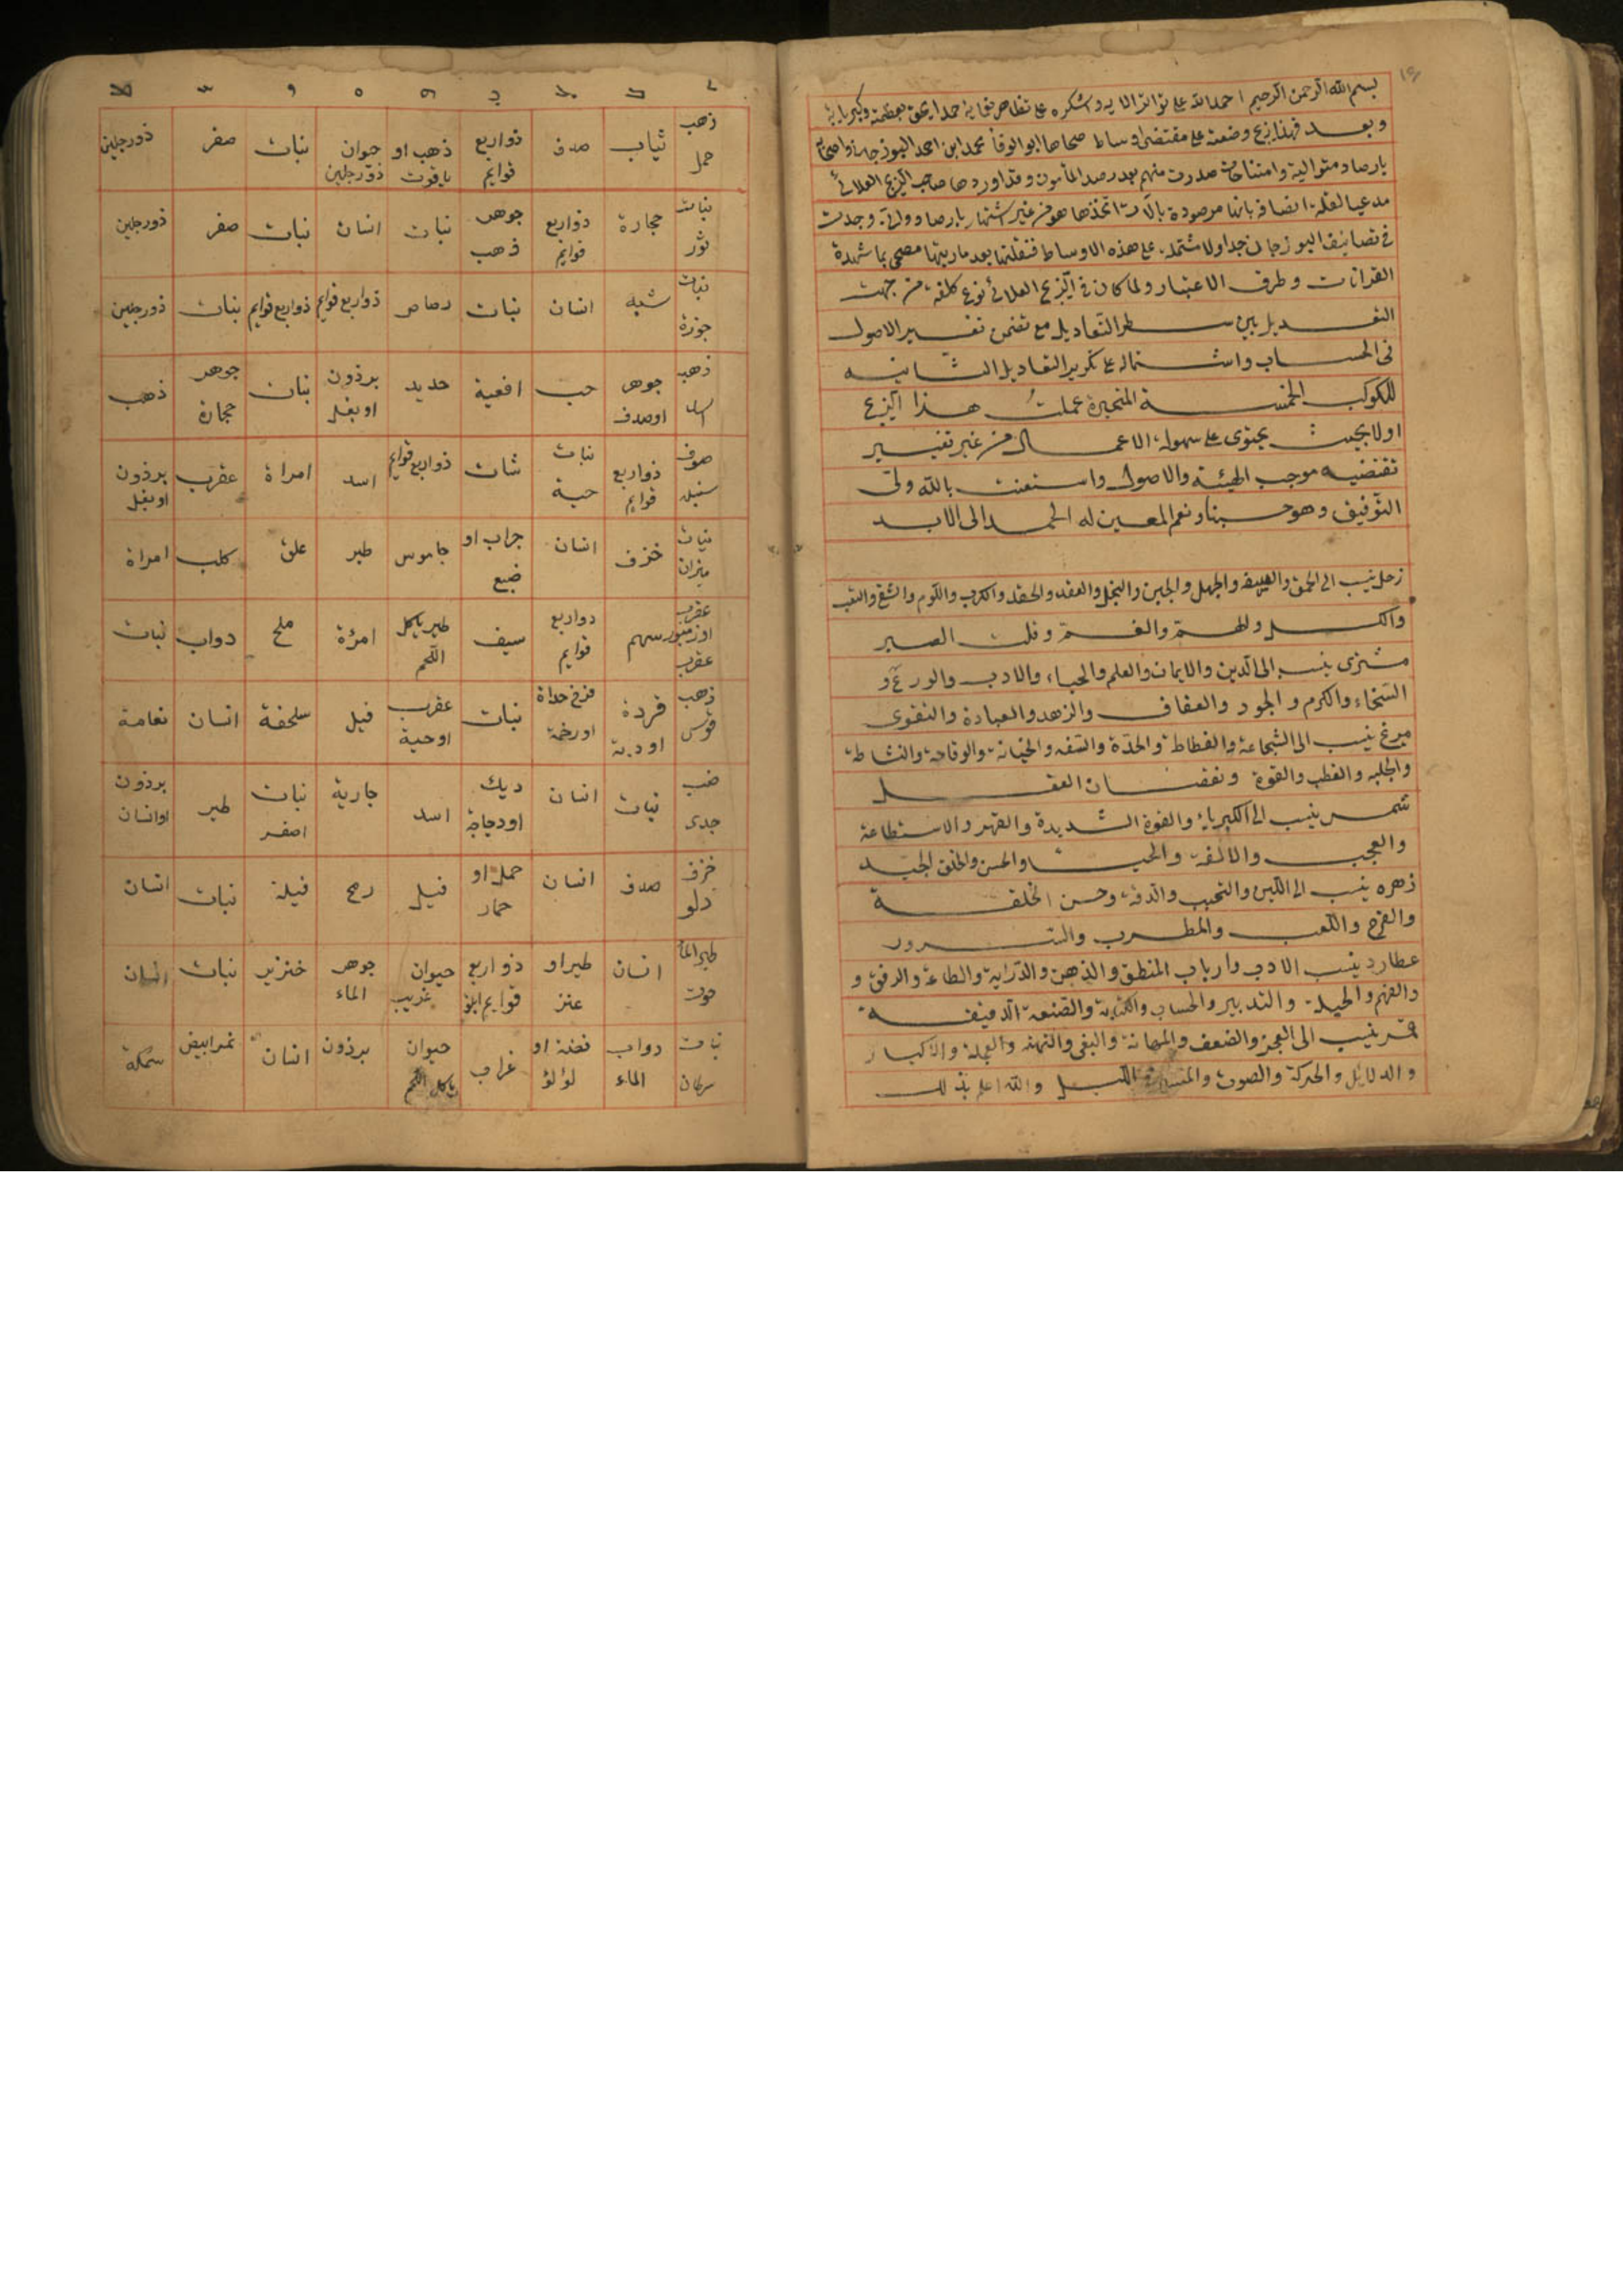 بسم الله الرحمن الرحيم احمد الله على تواتر الايه واشكره على تظاهر نعمايه حمدا يحق بعظمته وكبريايه
وبعد فهذا زيج وضعته على مقتضى اوساط صححها ابو الوفا محمد ابن احمد البوزجاني واصحابه
بارصاد متوالية وامتحانات صدرت منهم بعد رصد المأمون وقد اوردها صاحب الزيج العلائي
بانها مرصودة بالات اتخذها هو من غير اشتهار بارصاد ووجدت
في تصانيف البوزجاني جداولا مشتملة على هذه الاوساط فنقلتها بعد ما رتبتها مصححا بما شهدة
القرانات وطرق الاعتبار ولما كان في الزيج العلائي نوع كلفة من جهت
التعديل بين سطر التعاديل مع تضمن تغيير الاصول
في الحساب واشتماله على تكرير التعاديل الثانيه
للكوكب الخمسة المتحيرة عملت هذا الزيج
اولا بحيث يحتوى على سهولة الاعمال من غير تغيير
تقتضيه موجب الهيئة والاصول واستعنت بالله ولى
التوفيق وهو حسبنا ونعم المعين له الحمد الى الابد
زحل ينسب الى الحمق والجهل والجبن والبخل والحقد والكرب واللوم والتعب
والكسل ولهم والغم وقلت الصبر
مشترى ينسب الى الدين والايمان والعلم والحياء والادب والورع و
السخاء والكرم والجود والعفاف والزهد والعبادة والتقوى
مريخ ينسب الى الشجاعة والفظاظة والحدة والسفه والخيانة والوقاحة والنشاطة
والجلبه والغظب والقوة ونقصان العقل
شمس ينسب الى الكبرياء والقوة الشديدة والقهر والاستطاعة
والعجب والانفة والحسن والخلق الجيد
زهره ينسب الى اللين والتحبب وحسن الخلقة
والفرح واللعب والمطرب والسرور
عطارد ينسب الادب وارباب المنطق والذهن والدراية والطاعة والرفق و
والفهم والحيلة والتدبير والحساب والكتابة والصنعة الدقيقة
قمر ينسب الى العجز والضعف والمهانة والبغى والعجلة
والدلايل والحركة والصوت الليل والله اعلم بذلك
ذهب حمل ثياب صدف ذواربع قوايم ذهب او ياقوت حيوان ذورجلين نبات صفر ذورجلين
نبات ثور حجارة ذواربع قوايم جوهر ذهب نبات انسان نبات صفر ذورجلين
نبات جوزة شبه انسان نبات رصاص ذواربع قوايم ذواربع قوايم نبات ذورجلين
ذهب اسد جوهر اوصدف حب افعية حديد برذون اوبغل نبات جوهر حجارة ذهب
صوف سنبله ذواربع قوايم نبات حية شات ذواربع قوايم اسد امراة عقرب برذون اوبغل
نبات ميزان خزف انسان جراب او ضبع جاموس طير علق كلب امراة
عقرب اوزنبور عقرب سهم دواربع قوايم سيف طير ياكل اللحم امرؤة ملح دواب نبات
ذهب قوس قردة اودبة فرخ حداة اورخمة نبات عقرب اوحية فيل سلحفة انسان نعامة
ضب جدى نبات انسان ديك اودجاجة اسد جارية نبات اصفر طير برذون اوانسان
خزف دلو صدف انسان حمل او حمار فيل رمح فيلة نبات انسان
طير الماء حوت انسان طيراو عنز ذواربع قوايم حيوان غريب جوهر الماء خنزير نبات انسان
نبات سرطان دواب الماء فضة او لؤلؤ غراب حيوان ياكل اللحم برذون انسان نمر ابيض سمكة